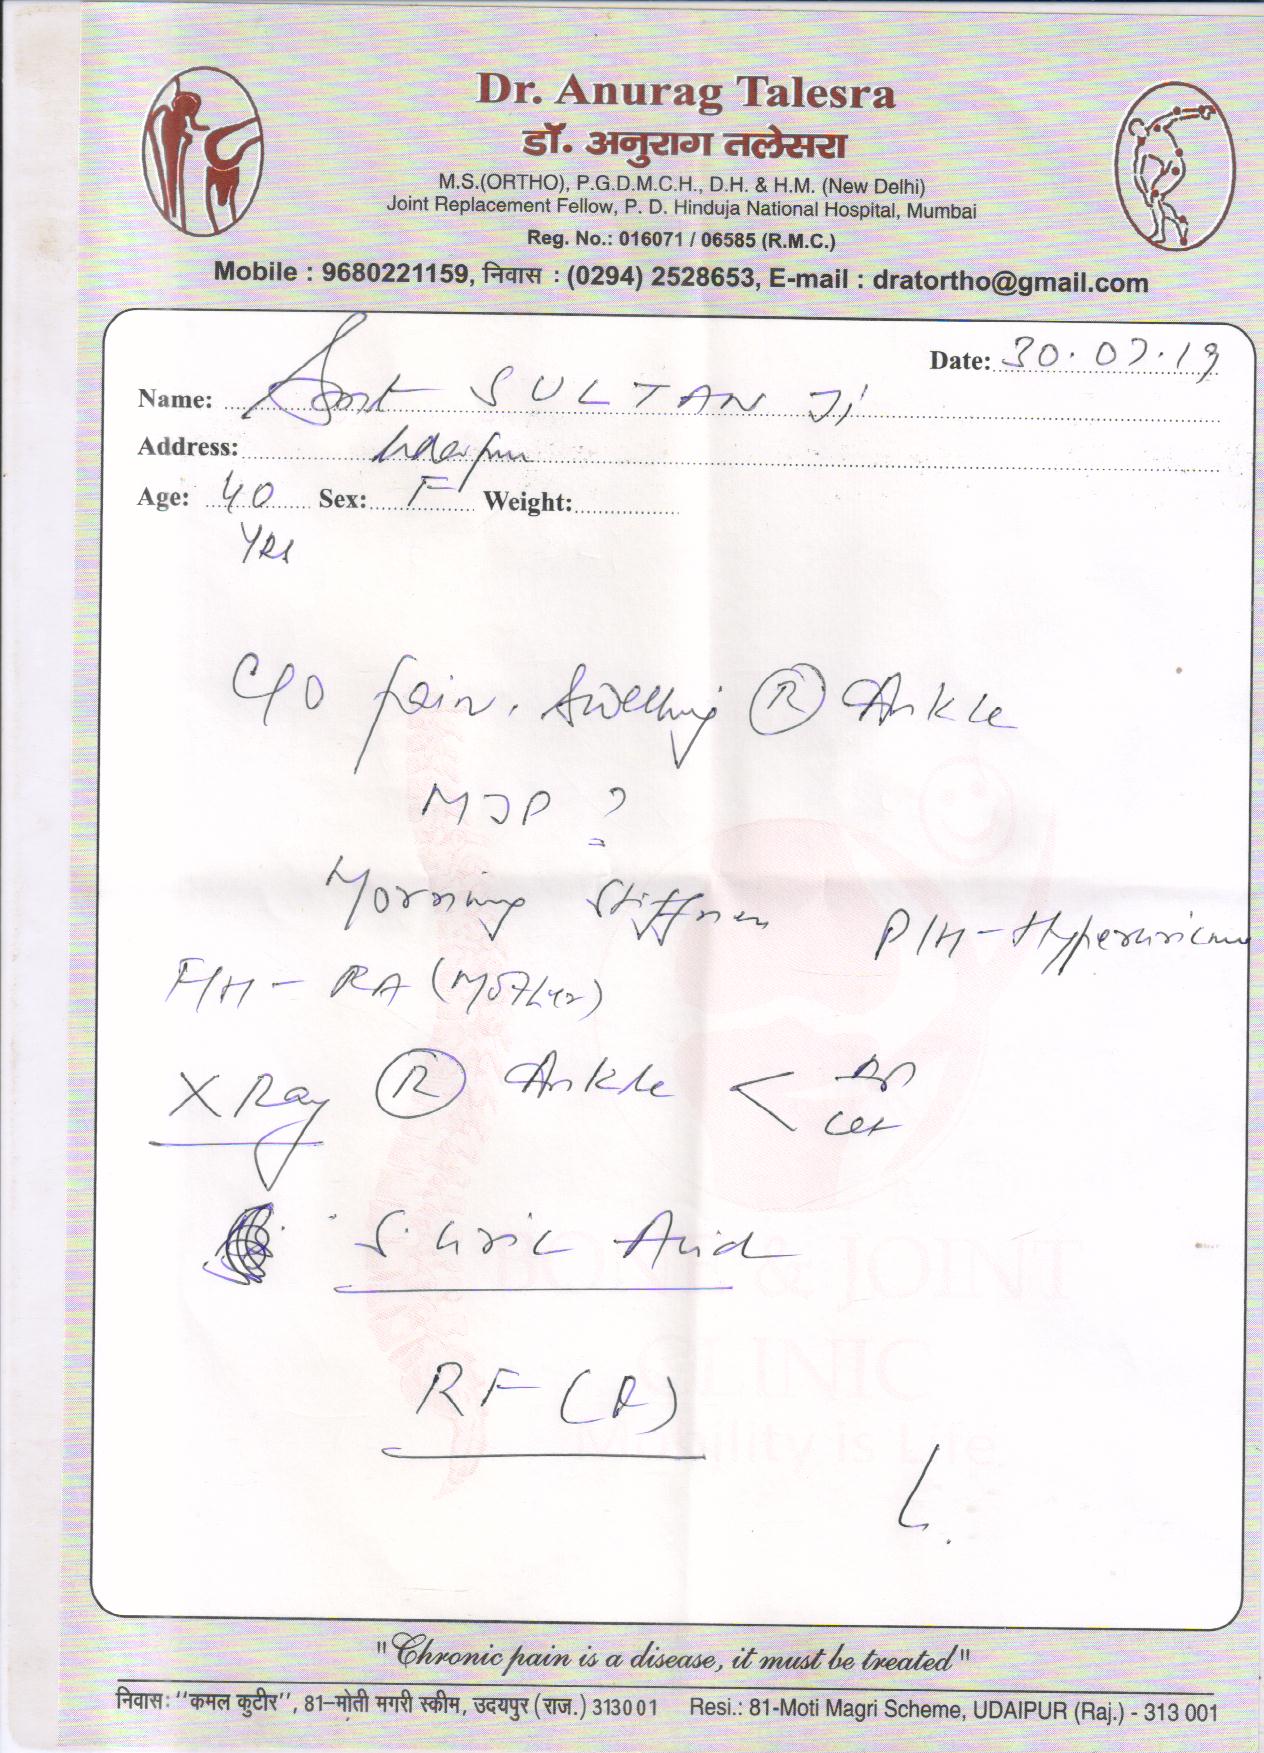 Dr. Anurag Talesra
डॉ. अनुराग तलेसरा
M.S.(ORTHO), P.G.D.M.C.H., D.H. & H.M. (New Delhi)
Joint Replacement Fellow, P. D. Hinduja National Hospital, Mumbai
Reg. No.: 016071 / 06585 (R.M.C.)
Mobile : 9680221159, निवास : (0294) 2528653, E-mail : dratortho@gmail.com
Date: 30.07.19
Name: Smt SULTAN Ji
Address: Udaipur
Age: 40 Sex: F Weight:
YRS
C/O Pain, Swelling R Ankle
MJP ?
Morning Stiffness
P/H - Hyperuricemia
F/H - RA (Mother)
X Ray R Ankle < AP
Lat
S. Uric Acid
RF (A)
BONE & JOINT
CLINIC
Mobility is Life
"Chronic pain is a disease, it must be treated"
निवास: "कमल कुटीर", 81-मोती मगरी स्कीम, उदयपुर (राज.) 313001 Resi.: 81-Moti Magri Scheme, UDAIPUR (Raj.) - 313 001